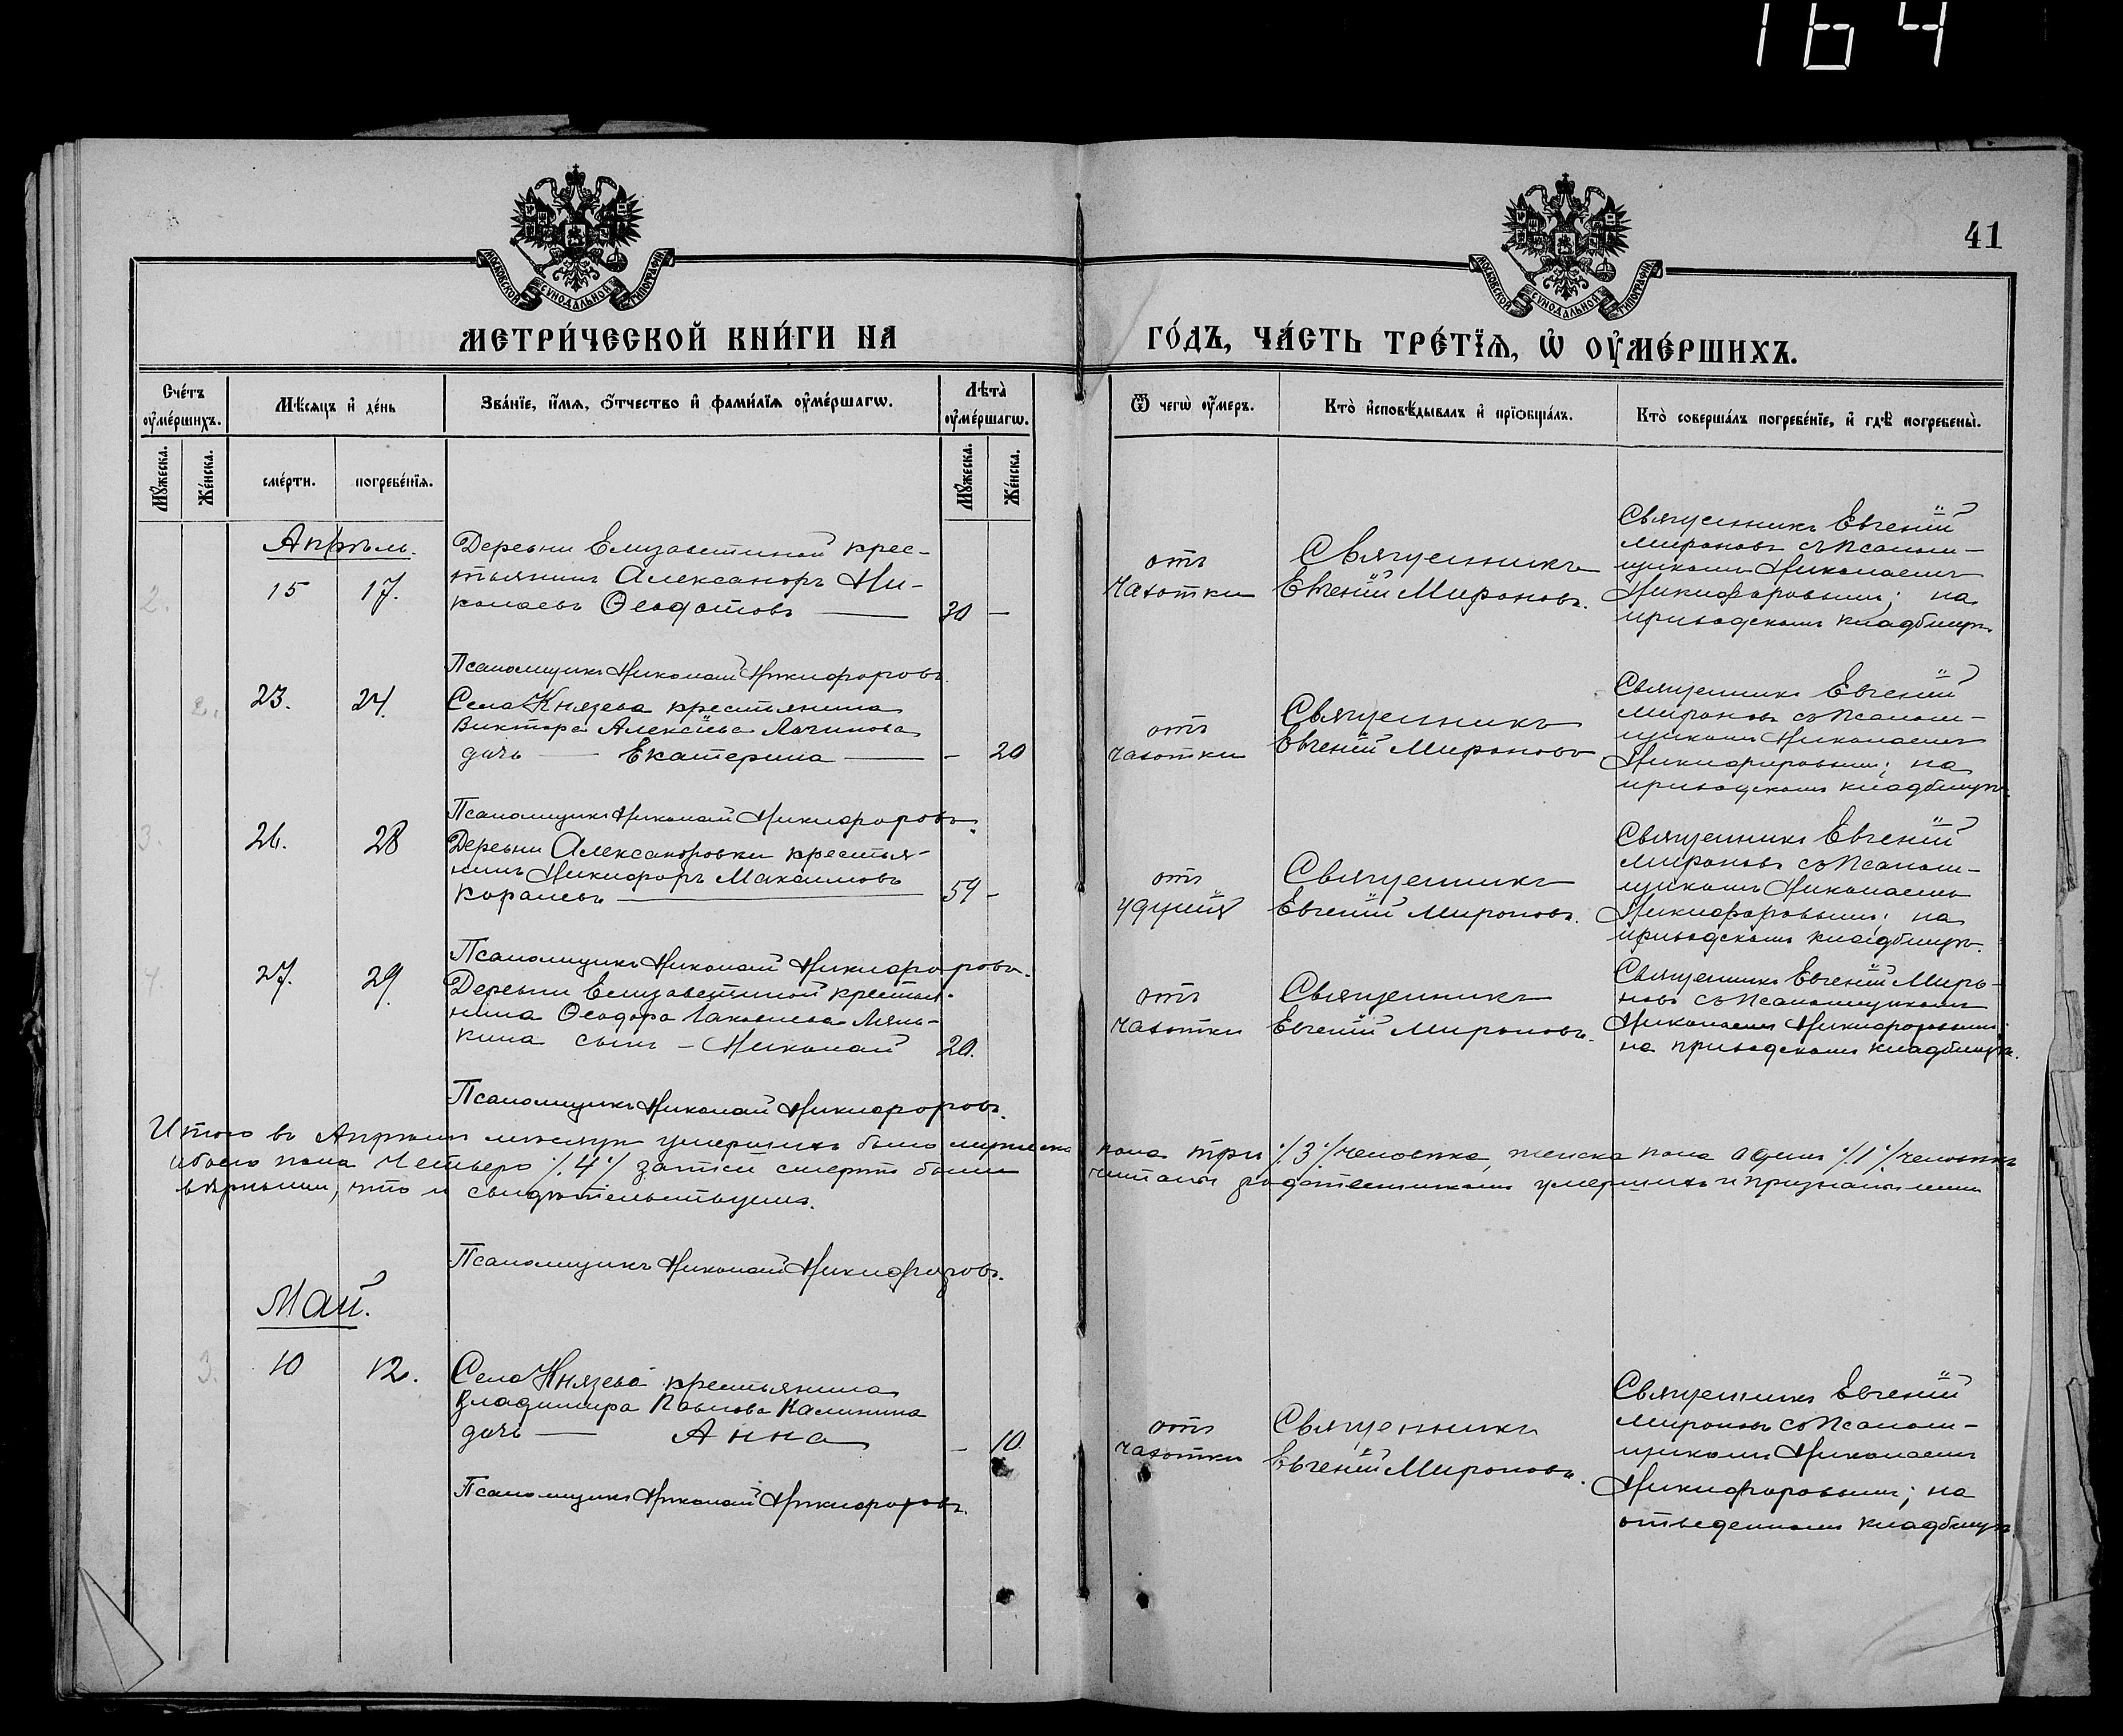 164
41
МОСКОВСКОЙ СѴНОДАЛЬНОЙ ТИПОГРАФІИ
МОСКОВСКОЙ СѴНОДАЛЬНОЙ ТИПОГРАФІИ
МЕТРИ́ЧЕСКОЙ КНИ́ГИ НА
ГО́ДЪ, ЧА́СТЬ ТРЕ́ТЇѦ, Ѽ ОУ҆МЕ́РШИХЪ.
Сче́тъ
оу҆ме́ршихъ.
Мѣ́сяцъ и҆ де́нь
Зва́нїе, и҆́мѧ, ѻ҆́тчество и҆ фами́лїѧ оу҆ме́ршагѡ.
Лѣ́та
оу҆ме́ршагѡ.
Ѿ чегѡ̀ оу҆́меръ.
Кто̀ и҆сповѣ́дывалъ и҆ прїѻбща́лъ.
Кто̀ соверша́лъ погребе́нїе, и҆ гдѣ̀ погребены̀.
Мꙋ́жеска.
Же́нска.
сме́рти.
погребе́нїѧ.
Мꙋ́жеска.
Же́нска.
Апрѣль.
2.
15
17.
Деревни Елизаветиной крес-
тьянинъ Александръ Ни-
колаевъ Ѳеодотовъ —
30 —
отъ
чахотки
Священникъ
Евгеній Мироновъ.
Священникъ Евгеній
Мироновъ съ псалом-
щикомъ Николаемъ
Никифоровымъ; на
приходскомъ кладбищѣ.
Псаломщикъ Николай Никифоровъ.
2.
23.
24.
Села Князева крестьянина
Виктора Алексѣева Лачинова
дочь — Екатерина —
— 20
отъ
чахотки
Священникъ
Евгеній Мироновъ
Священникъ Евгеній
Мироновъ съ псалом-
щикомъ Николаемъ
Никифоровымъ; на
приходскомъ кладбищѣ.
Псаломщикъ Николай Никифоровъ.
3.
26.
28
Деревни Александровки крестья-
нинъ Никифоръ Максимовъ
Королевъ —
54 —
отъ
удушья
Священникъ
Евгеній Мироновъ.
Священникъ Евгеній
Мироновъ съ псалом-
щикомъ Николаемъ
Никифоровымъ; на
приходскомъ кладбищѣ.
Псаломщикъ Николай Никифоровъ.
4.
27.
29.
Деревни Елизаветиной крестья-
нина Ѳеодора Іаковлева
сынъ — Николай
20.
отъ
чахотки
Священникъ
Евгеній Мироновъ.
Священникъ Евгеній Миро-
новъ съ псаломщикомъ
Николаемъ Никифоровымъ
на приходскомъ кладбищѣ.
Псаломщикъ Николай Никифоровъ.
Итого въ Апрѣлѣ мѣсяцѣ умершихъ было мужеска пола три %3% человѣка, женска пола одинъ %1% человѣкъ
обоего пола четверо %4% записи смерти были читаны родственникамъ умершихъ и признаны ими
вѣрными, что и свидѣтельствуемъ.
Псаломщикъ Николай Никифоровъ.
Май.
3.
10
12.
Села Князева крестьянина
Владимира Павлова Калинина
дочь — Анна
— 10.
отъ
чахотки
Священникъ
Евгеній Мироновъ.
Священникъ Евгеній
Мироновъ съ псалом-
щикомъ Николаемъ
Никифоровымъ; на
отведенномъ кладбищѣ.
Псаломщикъ Николай Никифоровъ.